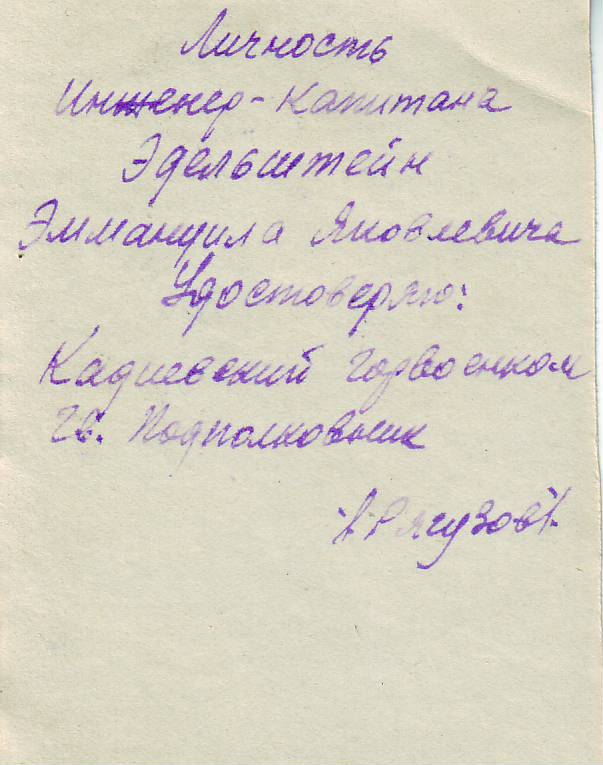 Личность
Инженер-капитана
Эдельштейн
Эммануила Яковлевича
Удостоверяю:
Кадиевский горвоенком
Гв. Подполковник
/Рягузов/.